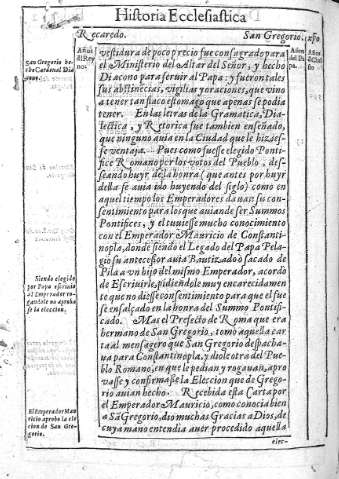 Historia Ecclesiastica
Recaredo. San Gregorio.
Años del Rey no.
Años del Pa pa.
Años de Chrīsto
vestidura de poco precio fue consagrado para
el Ministerio del Altar del Señor, y hecho
Diacono para seruir al Papa: y fueron tales
sus abstinēcias, vigilias y oraciones, que vino
a tener tan flaco estomago que apenas se podia
tener. En las letras de la Gramatica, Dia-
lectica, y Retorica fue tambien enseñado,
que ninguno auia en la Ciudad que le hiziess-
se ventaja. Pues como fuesse elegido Ponti-
fice Romano por los votos del Pueblo, des-
seando huyr de la honra (que antes por huyr
della se auia ido huyendo del siglo) como en
aquel tiempo los Emperadores dauan su con-
sentimiento para los que auian de ser Summos
Pontifices, y el tuuiesse mucho conocimiento
con el Emperador Mauricio de Constanti-
nopla, donde siendo el Legado del Papa Pela-
gio su antecessor auia Bautizado o sacado de
Pila a vn hijo del mismo Emperador, acordò
de Escriuirle, pidiendole muy encarecidamen
te que no diesse consentimiento para que el fue
se ensalçado en la honra del Summo Pontifi-
cado. Mas el Prefecto de Roma que era
hermano de San Gregorio, tomò aquella car
ta al mensagero que San Gregorio despacha-
ua para Constantinopla, y diole otra del Pue
blo Romano, en que le pedian y rogauan, apro
uasse y confirmasse la Eleccion que de Grego-
rio auian hecho. Recebida esta Carta por
el Emperador Mauricio, como conocia bien
a Sā Gregorio, dio muchas Gracias a Dios, de
cuya mano entendia auer procedido aquella
elec-
San Gregorio he-
cho Cardenal Dia
cono.
Siendo elegido
por Papa escriuio
al Emperador ro-
gandole no aprobas
se la eleccion.
El Emperador Mau
ricio aprobo la ele
cion de San Gre-
gorio.